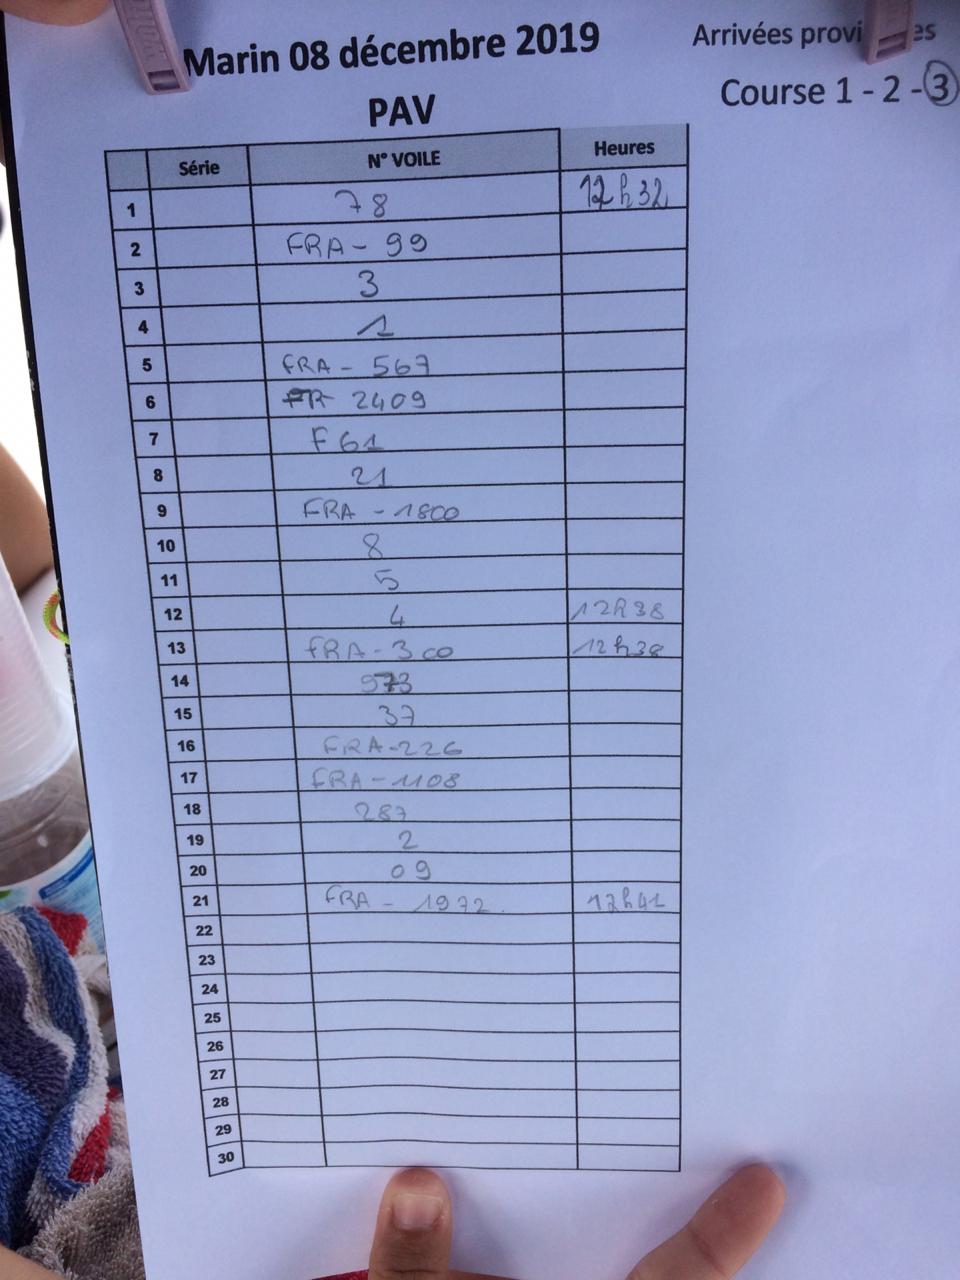 Marin 08 décembre 2019
Arrivées provi es
Course 1 - 2 - 3
PAV
Série N° VOILE Heures
1 78 12h32
2 FRA - 99
3 3
4 1
5 FRA - 567
6 FR 2409
7 F 61
8 21
9 FRA - 1800
10 8
11 5
12 4 12h38
13 FRA - 300 12h38
14 973
15 37
16 FRA - 226
17 FRA - 1108
18 287
19 2
20 09
21 FRA - 1972 12h41
22
23
24
25
26
27
28
29
30